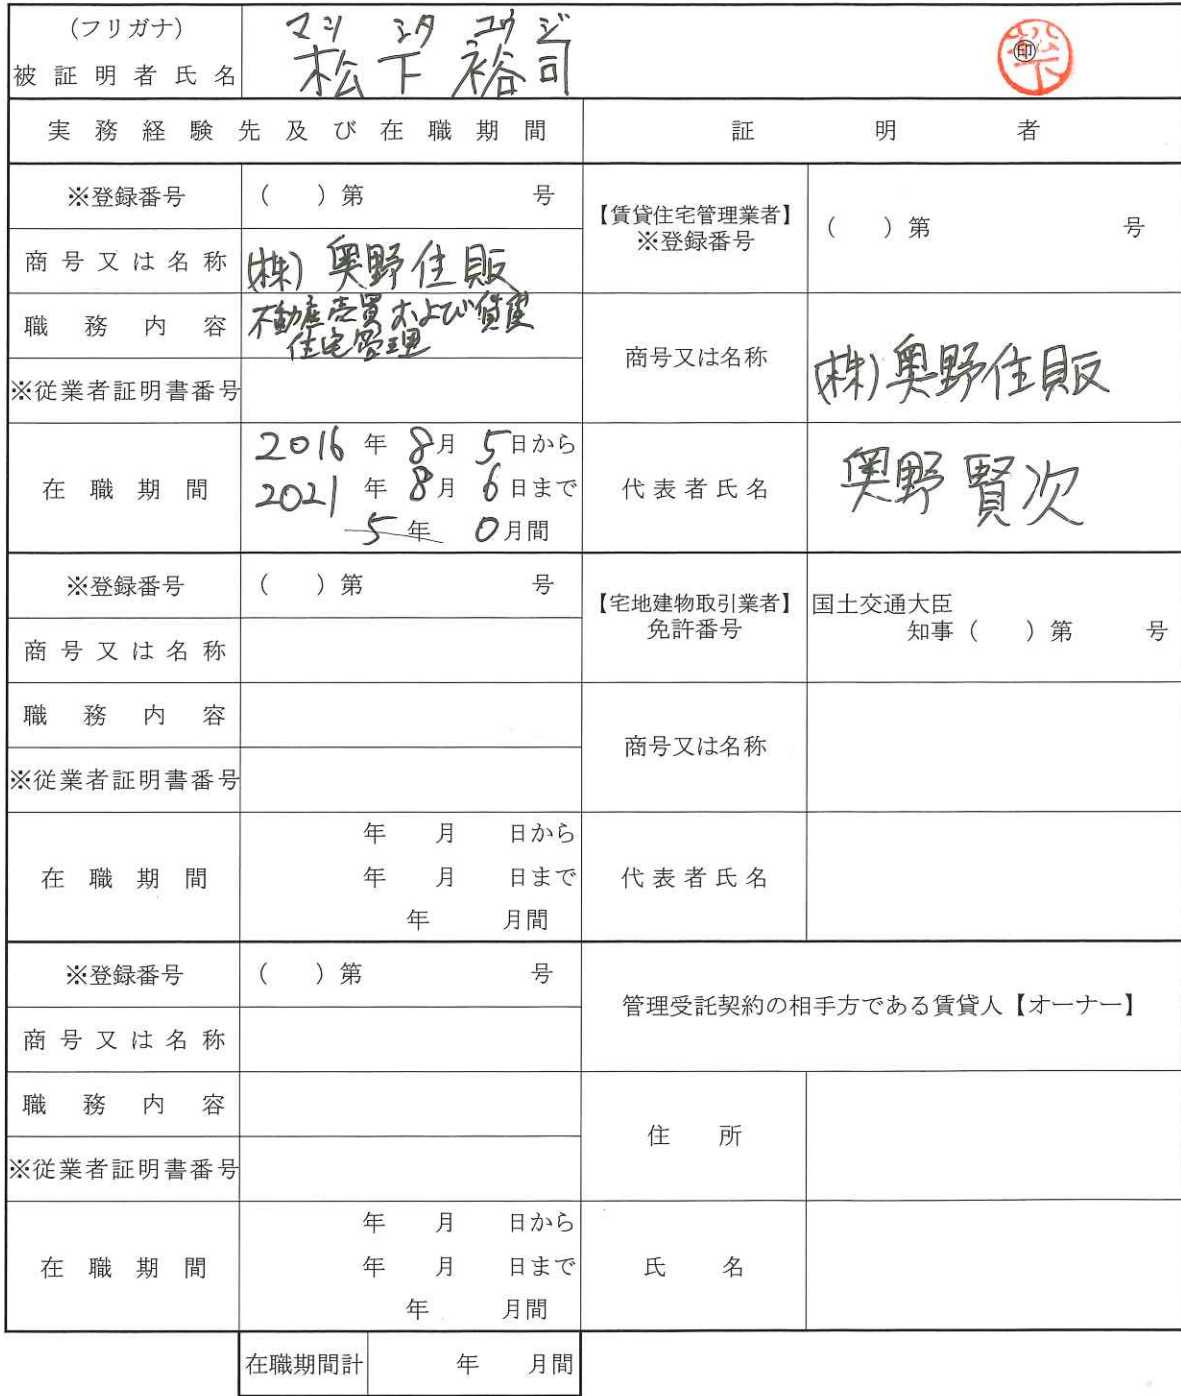 (フリガナ) マツ シタ ユウ ジ
被証明者氏名 松下 裕司 ㊞ 松下
実務経験先及び在職期間 証明者
※登録番号 ( )第 号
【賃貸住宅管理業者】
※登録番号 ( )第 号
商号又は名称 (株)奥野住販
職務内容 不動産売買および賃貸
住宅管理
商号又は名称 (株)奥野住販
※従業者証明書番号
在職期間 2016年8月5日から
2021年8月6日まで
5年 0月間
代表者氏名 奥野 賢次
※登録番号 ( )第 号
【宅地建物取引業者】
免許番号
国土交通大臣
知事( )第 号
商号又は名称
職務内容
商号又は名称
※従業者証明書番号
在職期間 年 月 日から
年 月 日まで
年 月間
代表者氏名
※登録番号 ( )第 号
管理受託契約の相手方である賃貸人【オーナー】
商号又は名称
職務内容
住所
※従業者証明書番号
在職期間 年 月 日から
年 月 日まで
年 月間
氏名
在職期間計 年 月間